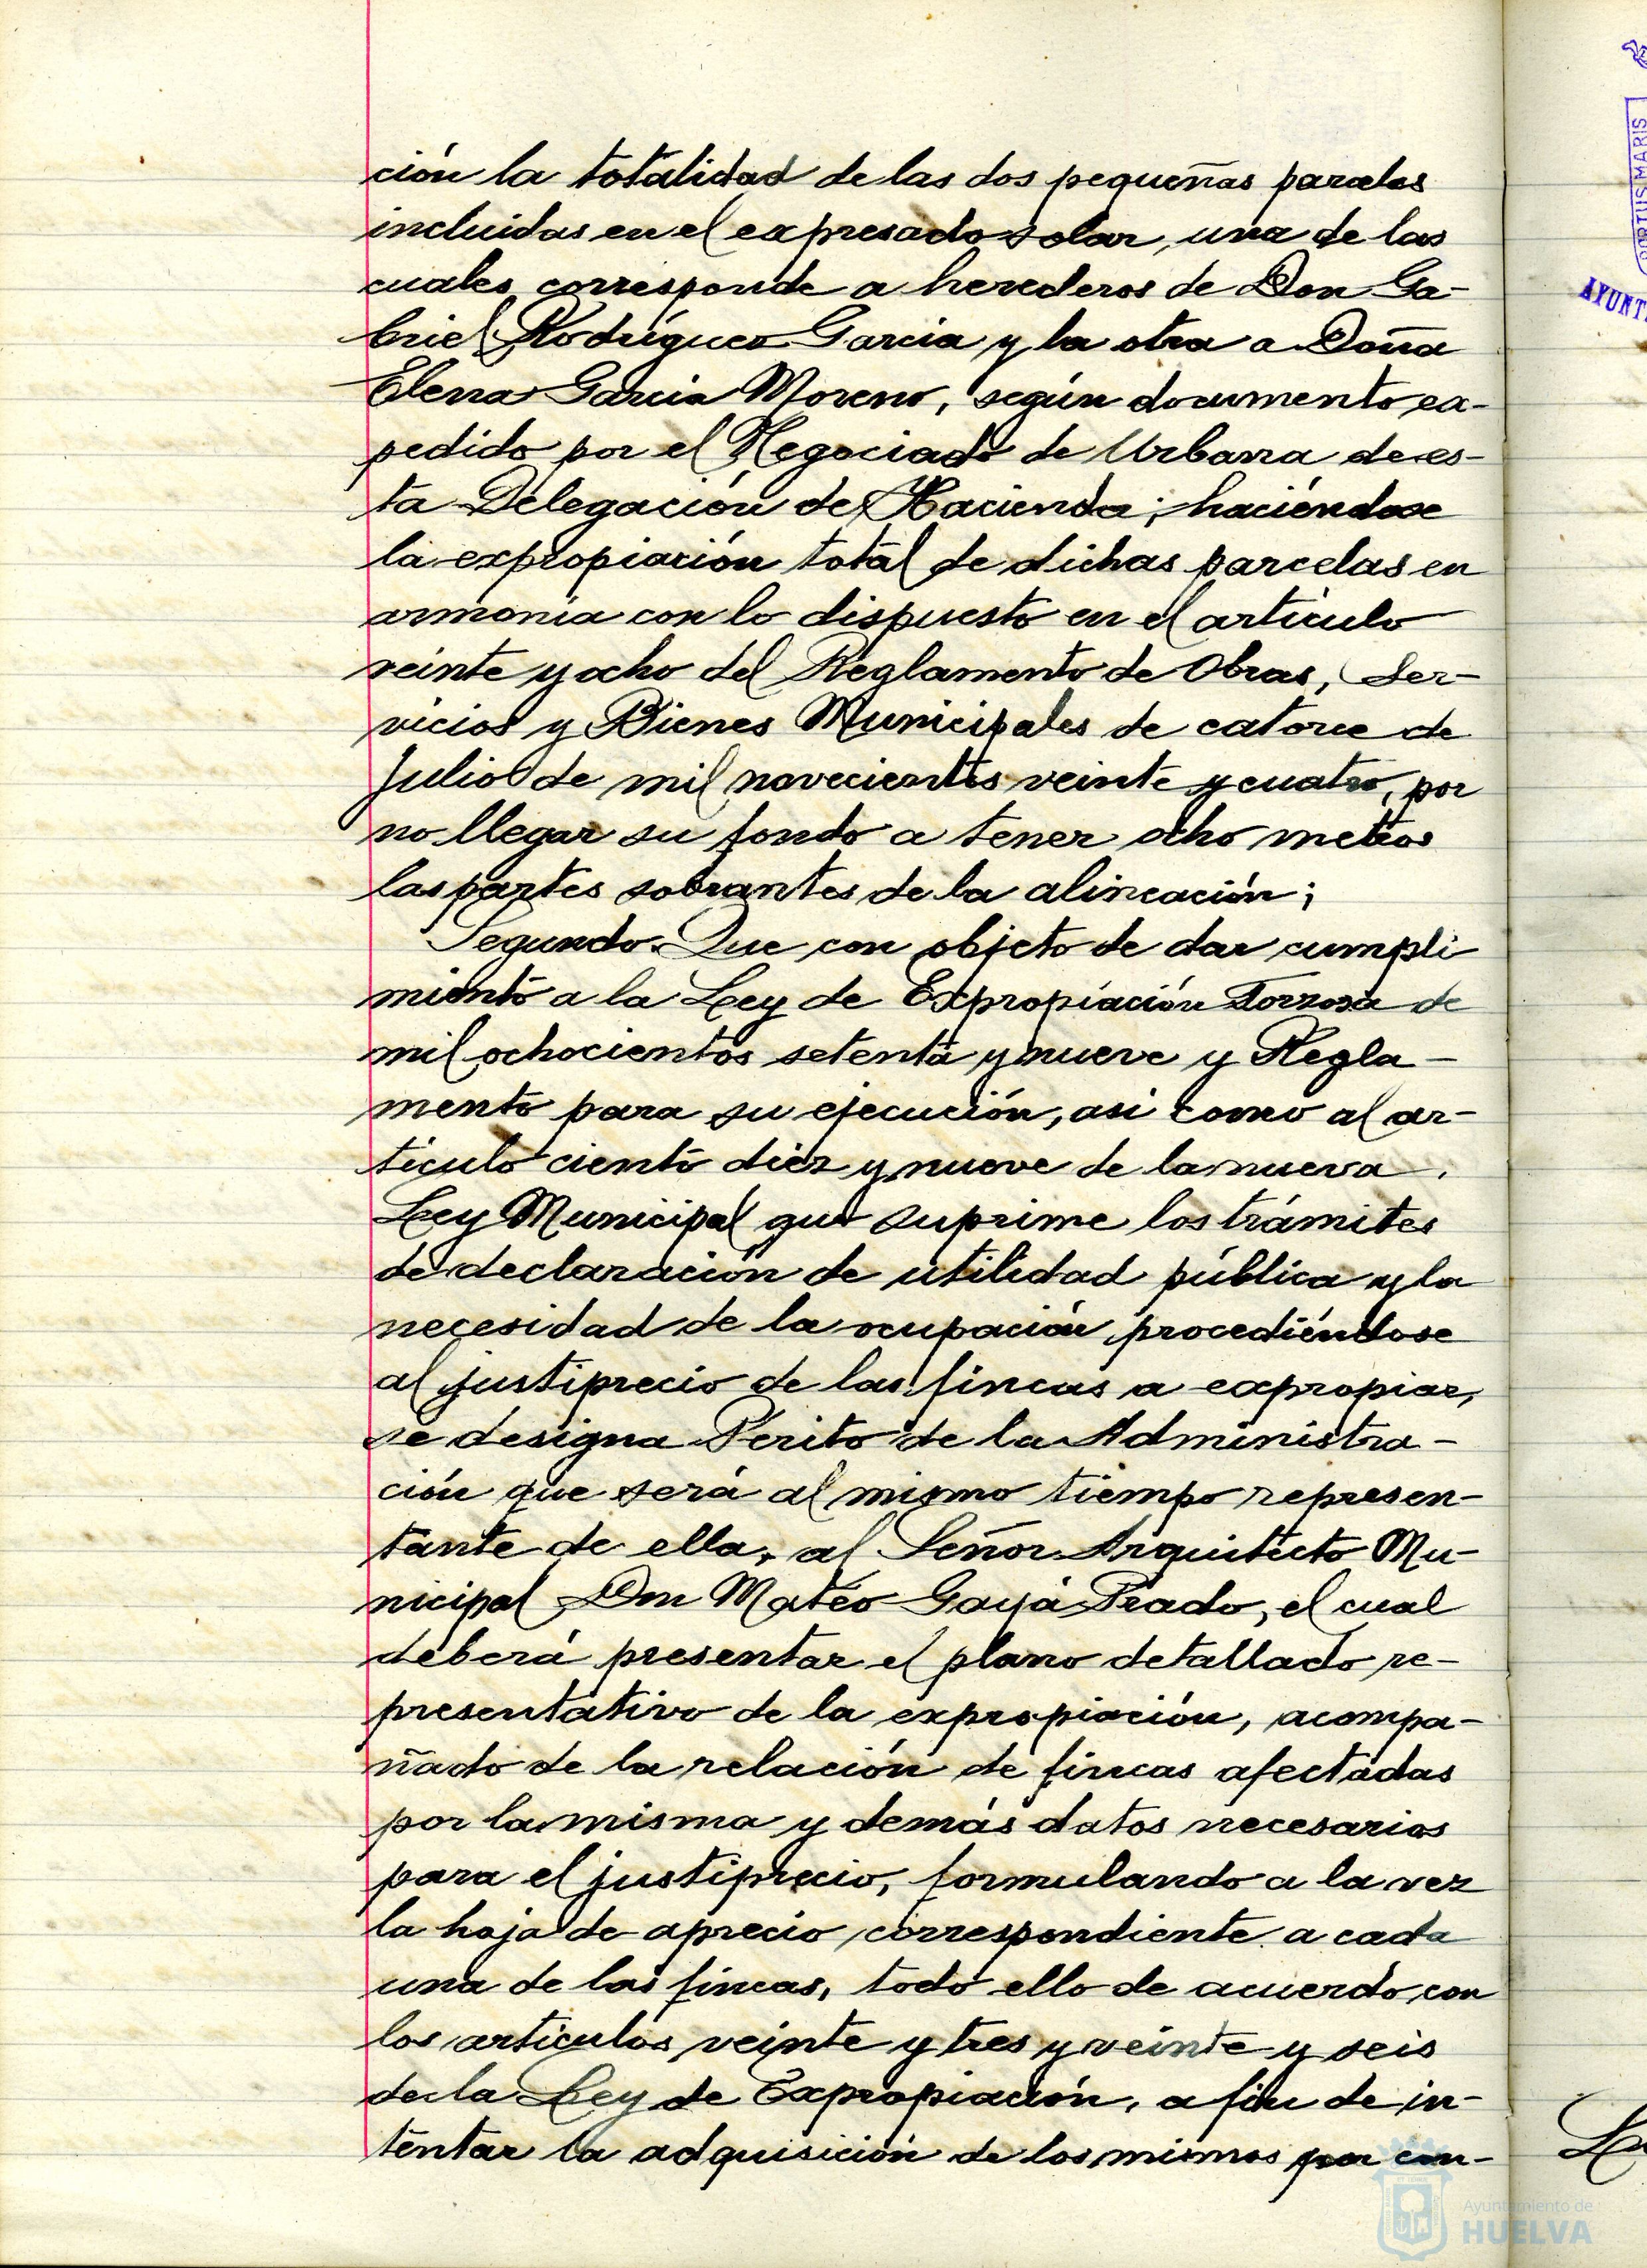 ción la totalidad de las dos pequeñas parcelas
incluidas en el expresado solar, una de las
cuales corresponde a herederos de Don Ga-
briel Rodríguez Garcia y la otra a Doña
Elena Garcia Moreno, según documento ex-
pedido por el Negociado de Urbana de es-
ta Delegación de Hacienda; haciéndose
la expropiación total de dichas parcelas en
armonia con lo dispuesto en el articulo
veinte y ocho del Reglamento de Obras, Ser-
vicios y Bienes Municipales de catorce de
Julio de mil novecientos veinte y cuatro, por
no llegar su fondo a tener ocho metros
las partes sobrantes de la alineación;
Segundo. Que con objeto de dar cumpli
miento a la Ley de Expropiación Forzosa de
mil ochocientos setenta y nueve y Regla-
mento para su ejecución, asi como al ar-
ticulo ciento diez y nueve de la nueva
Ley Municipal que suprime los trámites
de declaración de utilidad pública y la
necesidad de la ocupación, procediéndose
al justiprecio de las fincas a expropiar,
se designa Perito de la Administra-
ción que será al mismo tiempo represen-
tante de ella, al Señor Arquitecto Mu-
nicipal Don Mateo Gayá Prado, el cual
deberá presentar el plano detallado re-
presentativo de la expropiación, acompa-
ñado de la relación de fincas afectadas
por la misma y demás datos necesarios
para el justiprecio, formulando a la vez
la hoja de aprecio correspondiente a cada
una de las fincas, todo ello de acuerdo con
los articulos veinte y tres y veinte y seis
de la Ley de Expropiación, a fin de in-
tentar la adquisición de los mismos por con-
PORTUS MARIS
AYUNT
Ayuntamiento de
HUELVA